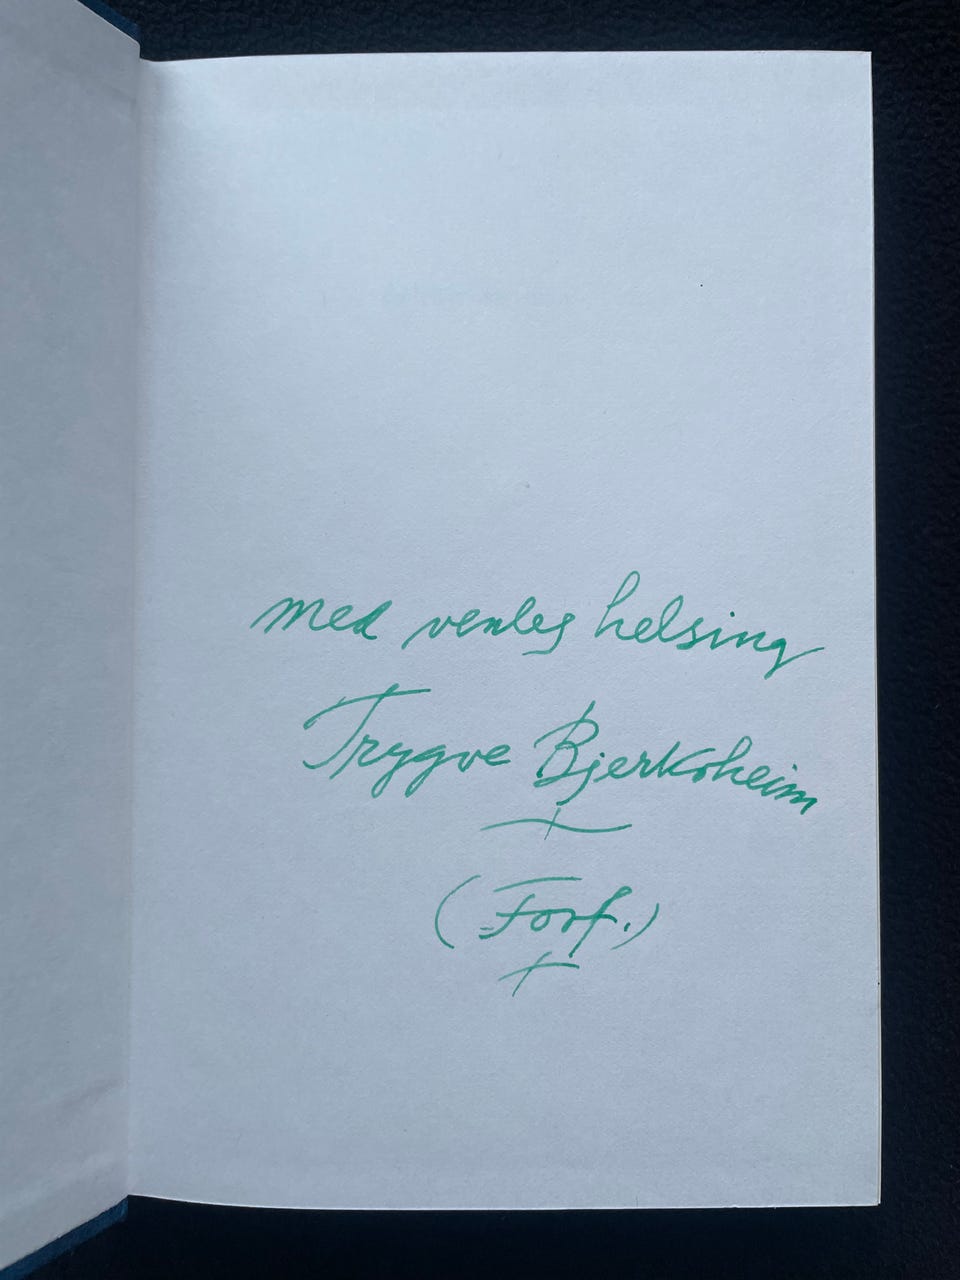 med venleg helsing
Trygve Bjerkrheim
(Forf.)